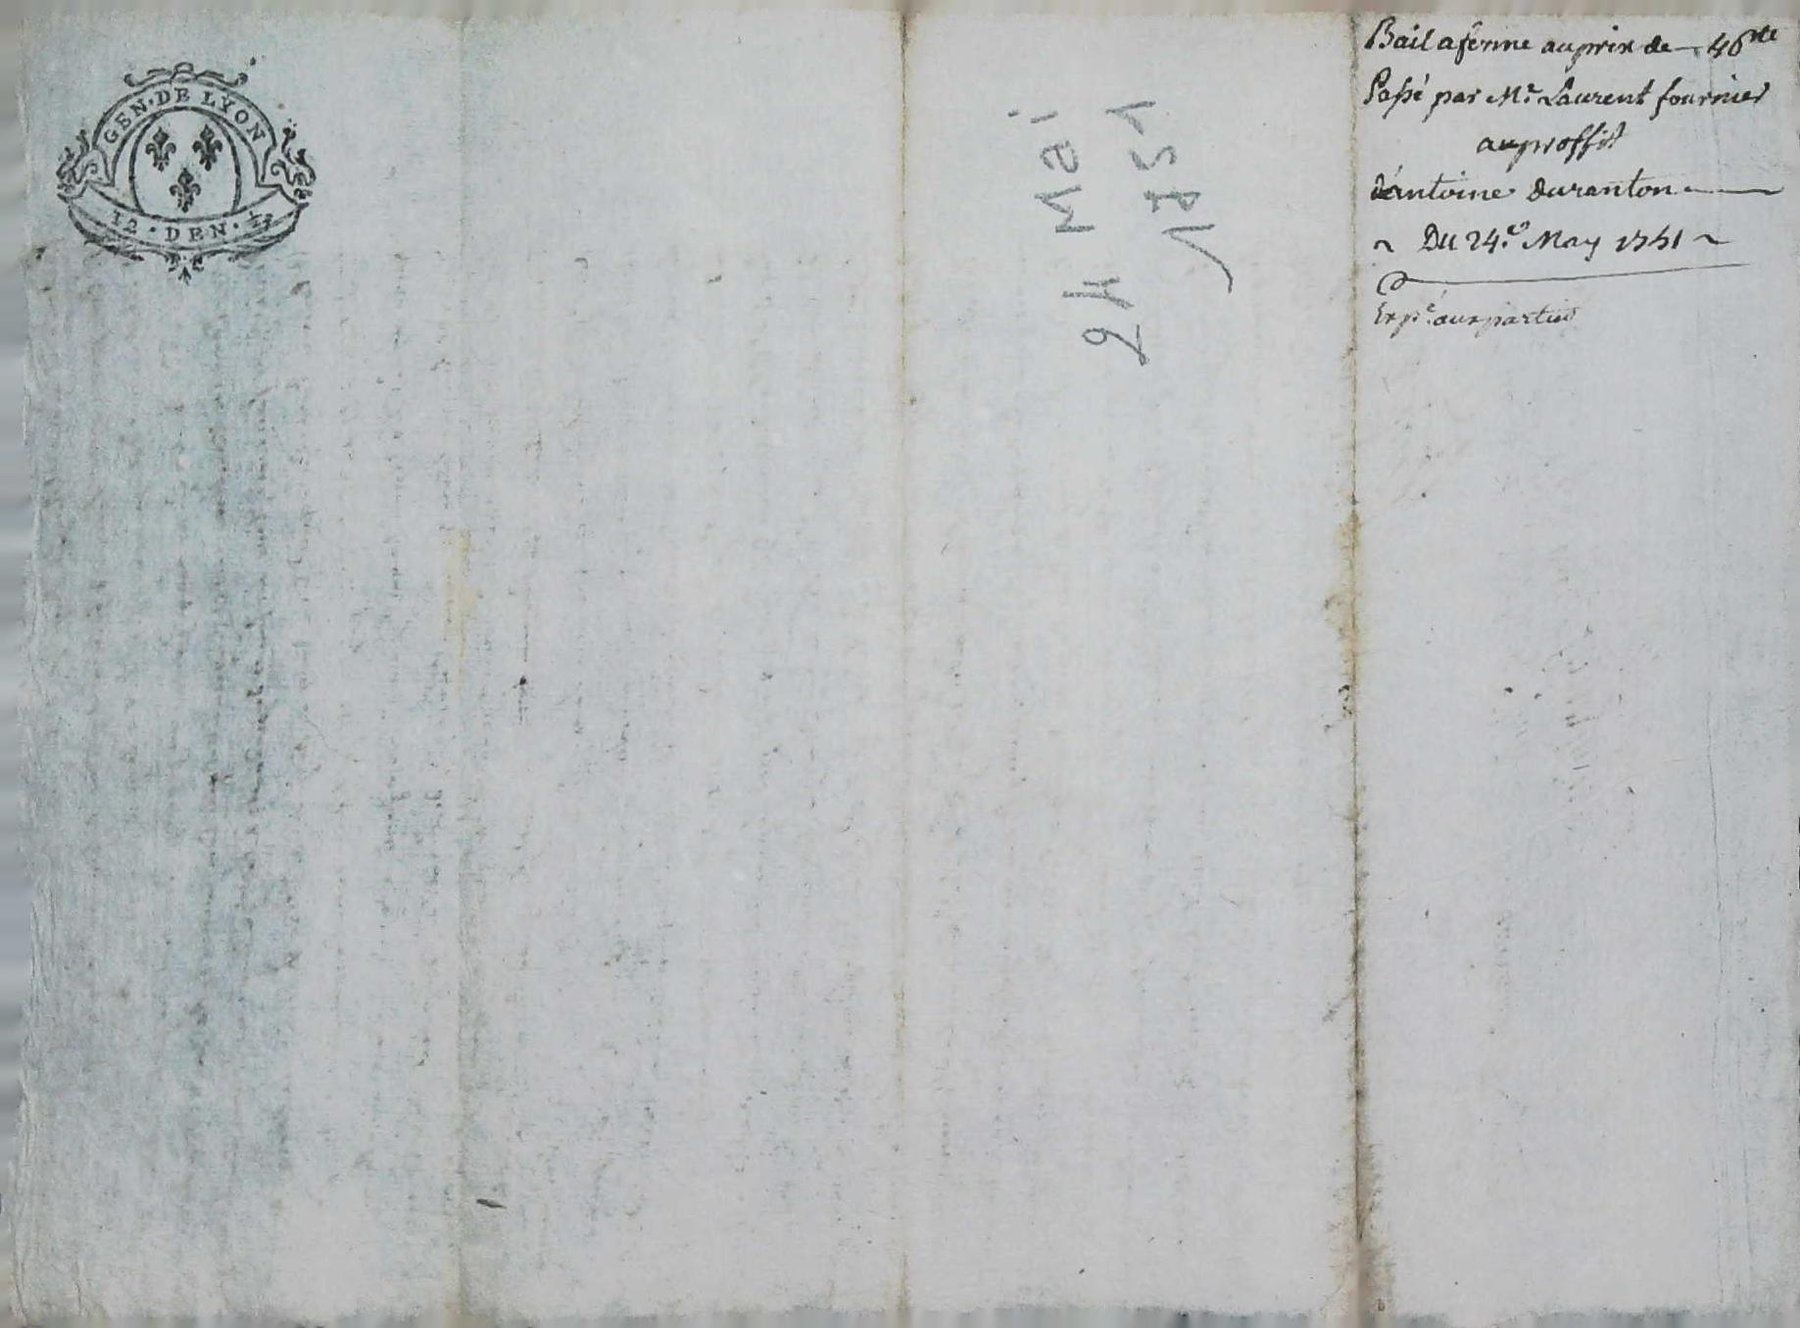 GEN·DE LYON
12·DEN·1/3
24 Mai
1751
Bail aferme au prix de 46#
Passé par Mr. Laurent fournier
au proffit
d'antoine duranton
~ Du 24.e May 1751 ~
Exp.é aux parties